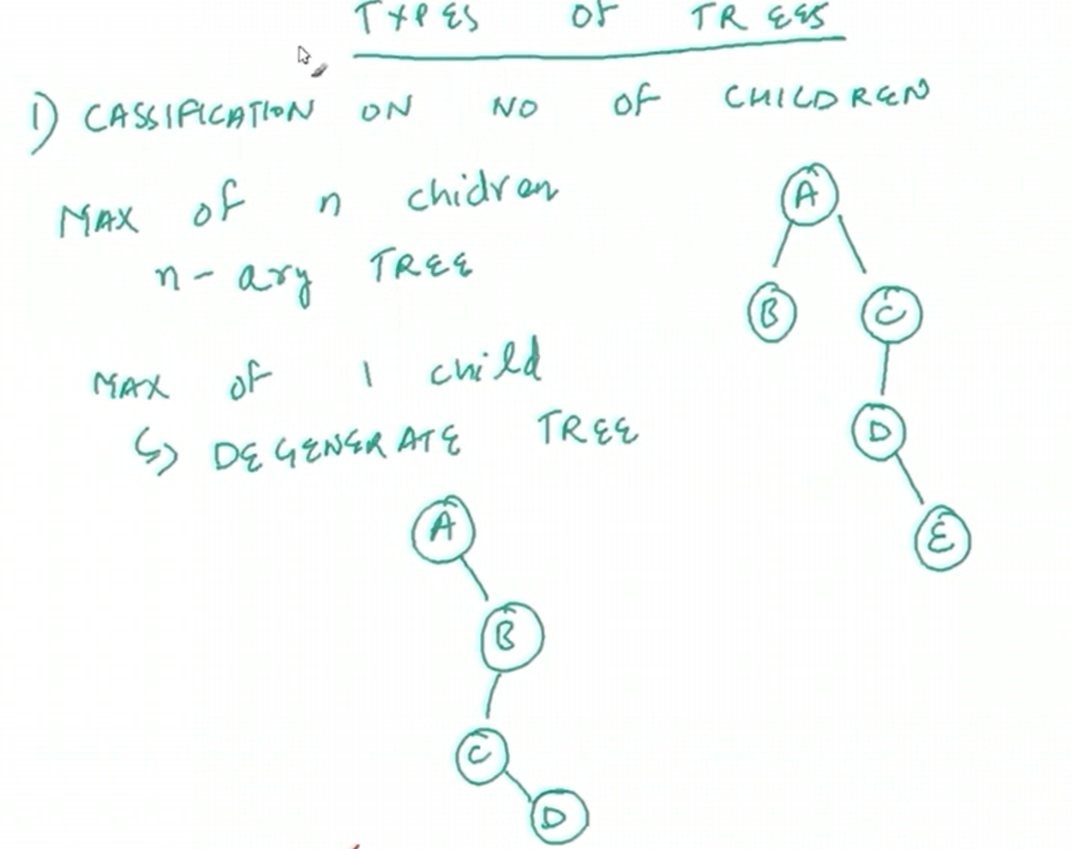 TYPES OF TREES
1) CASSIFICATION ON NO OF CHILDREN
MAX of n chidren
n-ary TREE
MAX of 1 child
↳ DEGENERATE TREE
A
B
C
D
E
A
B
C
D